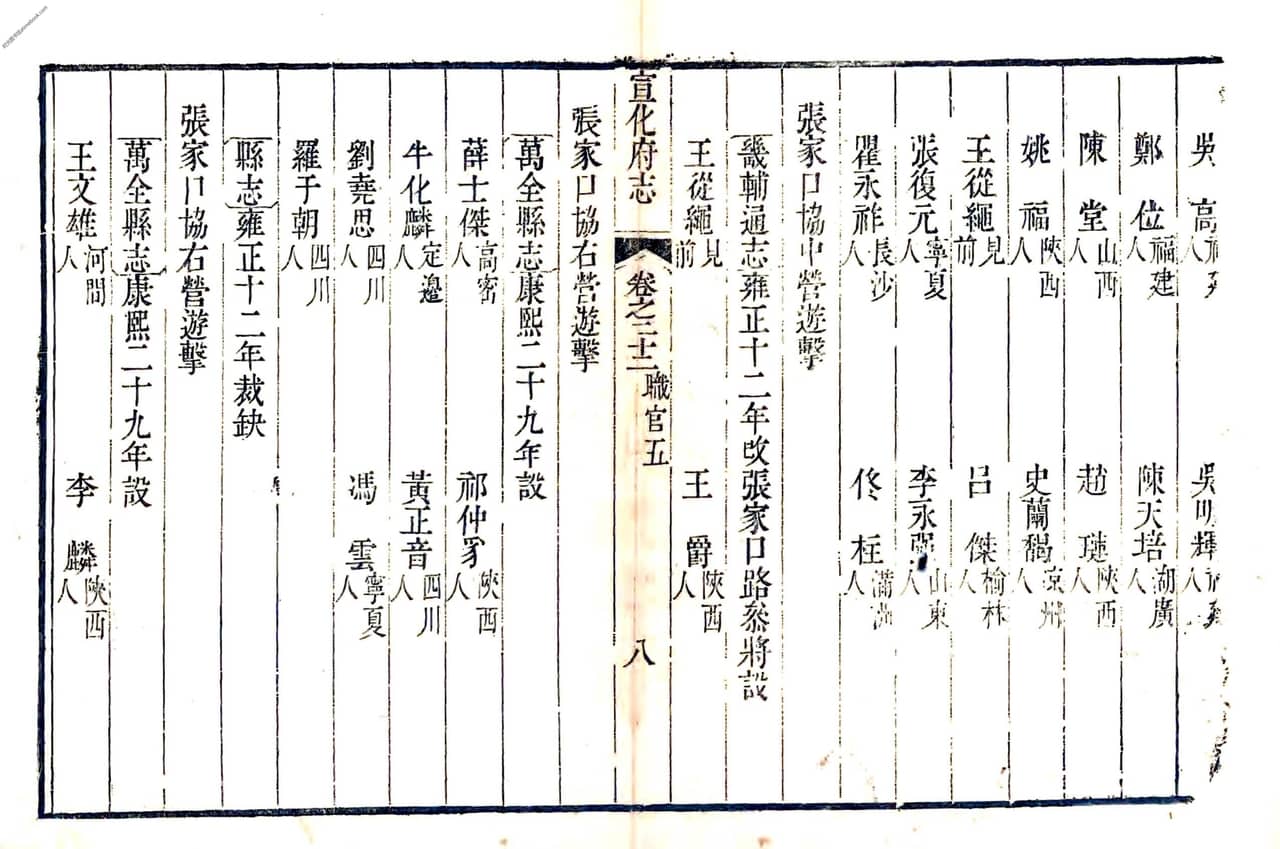 吳高福建人 吳明輝福建人
鄭位福建人 陳天培湖廣人
陳堂山西人 趙璉陝西人
姚福陝西人 史蘭馤涼州人
王從繩見前 呂傑榆林人
張復元寧夏人 李永强山東人
瞿永祚長沙人 佟柱滿洲人
張家口協中營遊擊
畿輔通志雍正十二年改張家口路叅將設
王從繩見前 王爵陝西人
宣化府志 卷之二十二 職官五 八
張家口協右營遊擊
萬全縣志康熙二十九年設
薛士傑高密人 祁仲豸陝西人
牛化麟定邊人 黃正音四川人
劉堯思四川人 馮雲寧夏人
羅于朝四川人
縣志雍正十二年裁缺
張家口協右營遊擊
萬全縣志康熙二十九年設
王文雄河間人 李麟陝西人